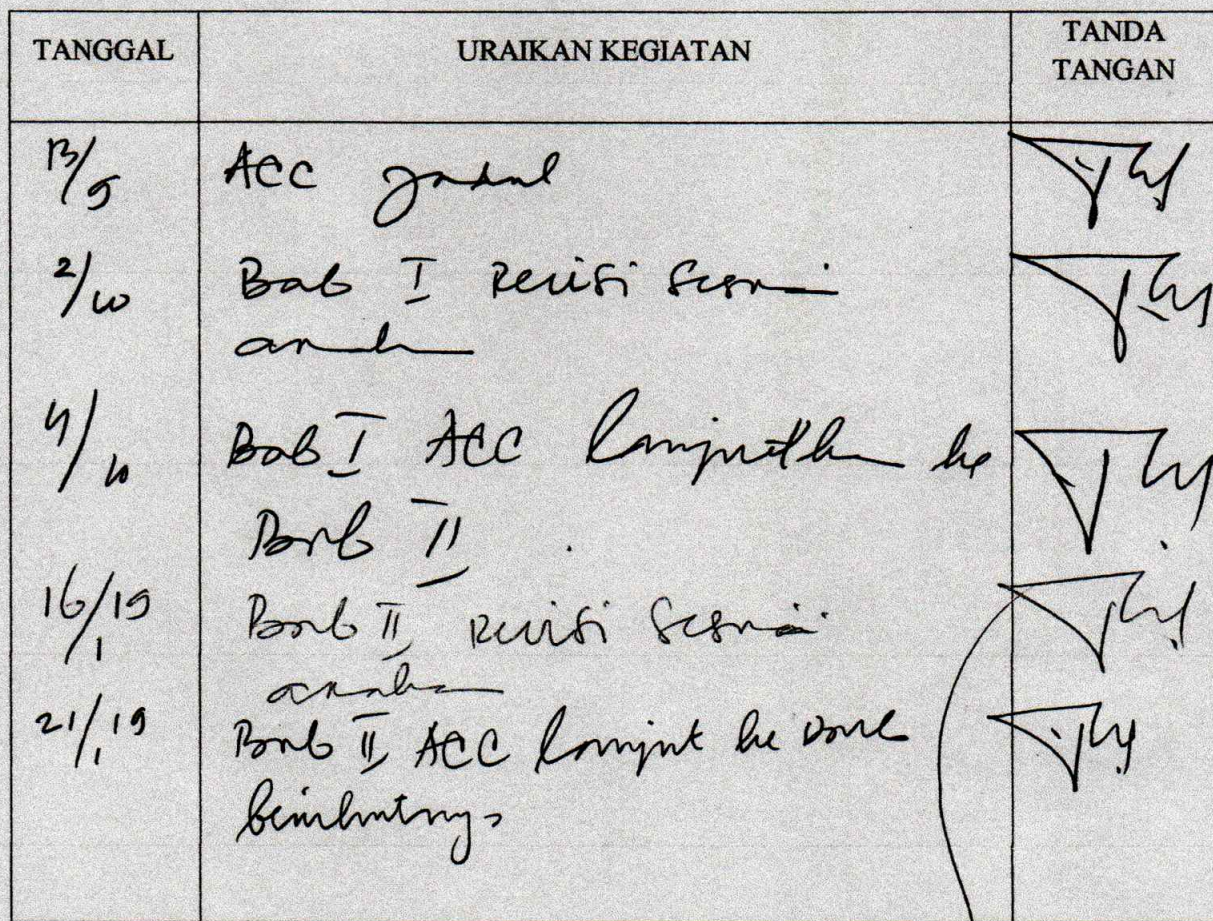 TANGGAL URAIKAN KEGIATAN TANDA
TANGAN
13/9 ACC Judul
2/10 Bab I Revisi sesuai
arahan
4/10 Bab I ACC lanjutkan ke
Bab II
16/19 Bab II revisi sesuai
1
arahan
21/19 Bab II ACC lanjut ke bab
1
berikutnya